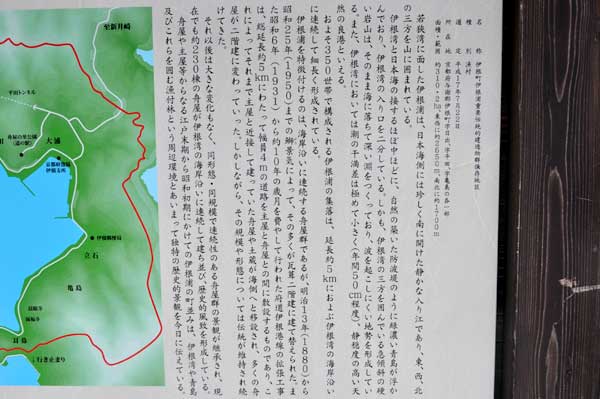 名　称　伊根町伊根浦重要伝統的建造物群保存地区
種　別　漁村
選　定　平成17年7月22日
所在地　京都府与謝郡伊根町字日出、字平田、字亀島の各一部
面積・範囲　約310.2ha、東西に約2650m、南北に約1700m
若狭湾に面した伊根浦は、日本海側には珍しく南に開けた静かな入り江であり、東、西、北
の三方を山に囲まれている。
伊根湾と日本海の接するほぼ中ほどに、自然の築いた防波堤のように緑濃い青島が浮か
んでおり、伊根湾の入り口を二分している。しかも、伊根湾の三方を囲んでいる急傾斜の硬
い岩山は、そのまま海に落ちて深い淵をつくっており、波を起こしにくい地勢を形成してい
る。また、伊根湾においては潮の干満差は極めて小さく(年間50cm程度)、静穏度の高い天
然の良港といえる。
およそ350世帯で構成される伊根浦の集落は、延長約5kmにおよぶ伊根湾の海岸沿い
に連続して細長く形成されている。
伊根浦を特徴付けるのは、海岸沿いに連続する舟屋群であるが、明治13年(1880)から
昭和25年(1950)までの鰤景気によって、その多くが瓦葺二階建に建て替えられた。ま
た昭和6年(1931)から約10年の歳月を費やして行われた府道伊根港線の拡張工事
は、総延長約5kmにわたって幅員4mの道路を主屋と舟屋との間に敷設するものであり、こ
れによってそれまで主屋と近接して建っていた舟屋や土蔵が海側へと移設され、多くの舟
屋が二階建に変わっていった。しかしながら、その規模や形態については伝統が維持され続
けてきた。
それ以後は大きな変化もなく、同形態・同規模で連続性のある舟屋群の景観が継承され、現
在でも約230棟の舟屋が伊根湾の海岸沿いに連続して建ち並び、歴史的風致を形成している。
舟屋や主屋等からなる江戸末期から昭和初期にかけての伊根浦の町並みは、伊根湾や青島
及びこれらを囲む魚付林という周辺環境とあいまって独特の歴史的景観を今日に伝えている。
至新井崎
平田トンネル
舟屋の里公園
(道の駅)
大浦
京都府漁協
伊根支所
伊根郵便局
立石
亀島
耳鼻
行き止まり